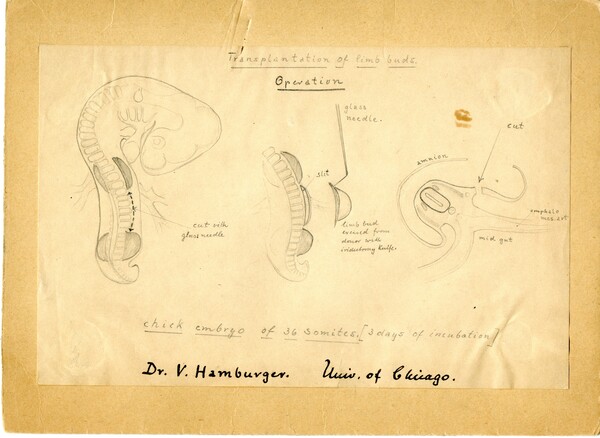 Transplantation of limb buds.
Operation
glass
needle.
cut
amnion
slit
cut with
glass needle
limb bud
excised from
donor with
iridectomy knife.
omphalo
mes. art.
mid gut
chick embryo of 36 somites. [3 days of incubation]
Dr. V. Hamburger. Univ. of Chicago.